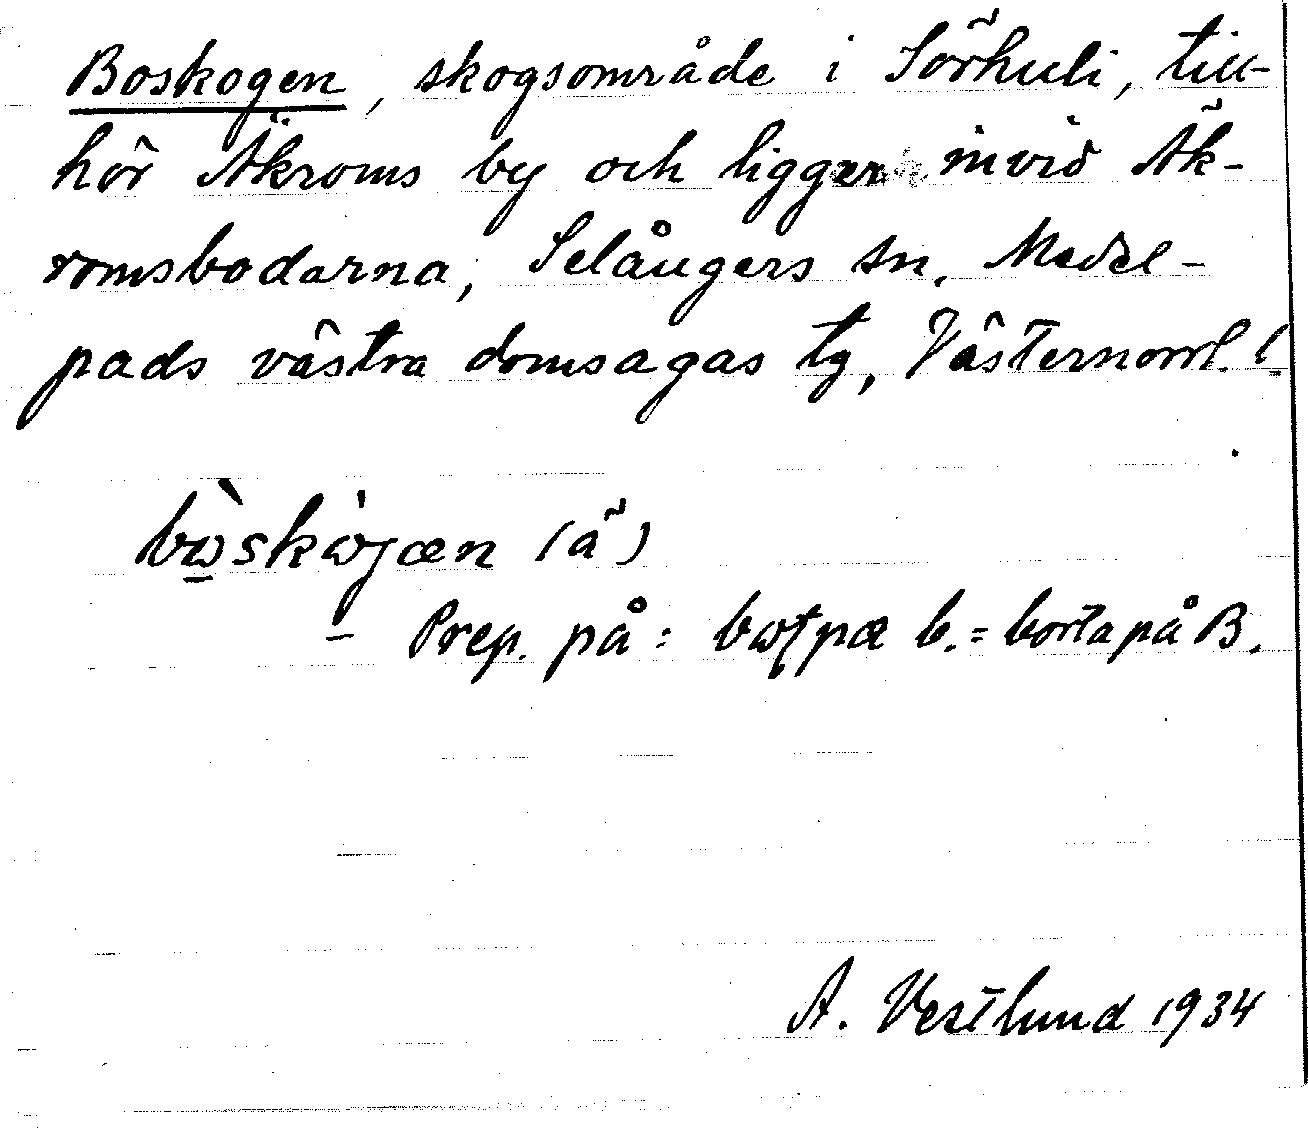 Boskogen, skogsområde i Sörhuli, till-
hör Äkroms by och ligger invid Äk-
romsbodarna, Selångers sn, Medel-
pads västra domsagas tg, Västernorrl. l.
bɷ̀skɷ̀gæn (ä)
– Prep. på: pæ b. = borta på B.
A. Vestlund 1934